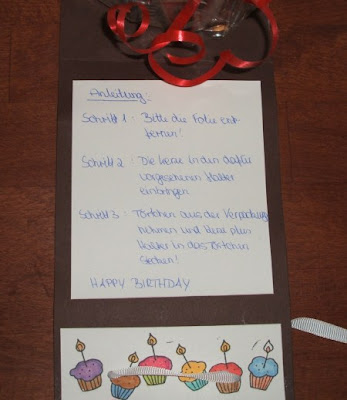 Anleitung:
Schritt 1: Bitte die Folie ent-
fernen!
Schritt 2: Die Kerze in den dafür
vorgesehenen Halter
einbringen
Schritt 3: Törtchen aus der Verpackung
nehmen und Kerze plus
Halter in das Törtchen
stecken!
HAPPY BIRTHDAY